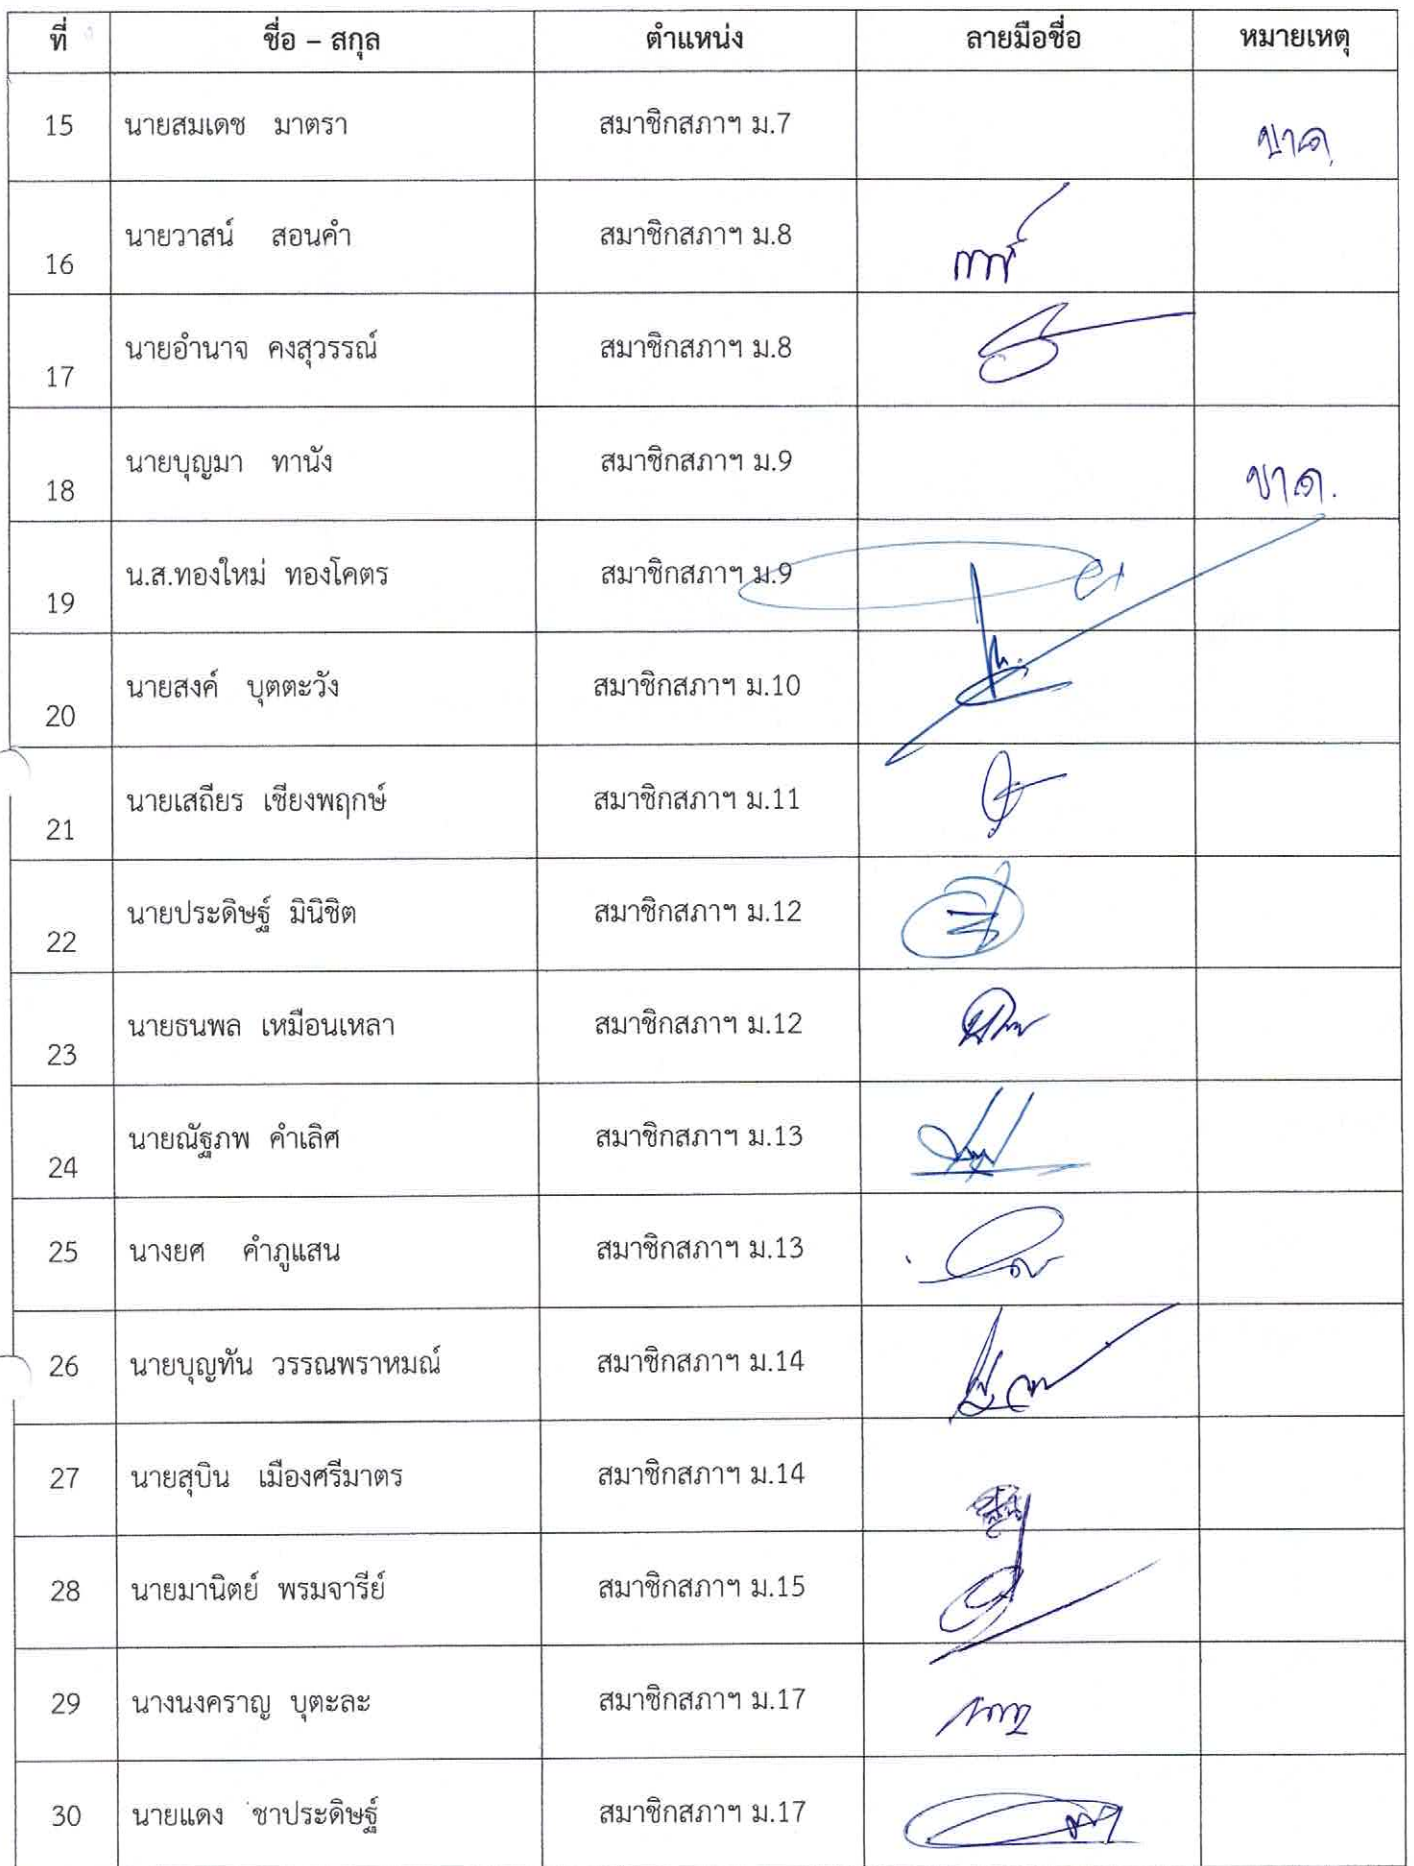 ที่ ชื่อ – สกุล ตำแหน่ง ลายมือชื่อ หมายเหตุ
15 นายสมเดช มาตรา สมาชิกสภาฯ ม.7 ขาด
16 นายวาสน์ สอนคำ สมาชิกสภาฯ ม.8
17 นายอำนาจ คงสุวรรณ์ สมาชิกสภาฯ ม.8
18 นายบุญมา ทานัง สมาชิกสภาฯ ม.9 ขาด.
19 น.ส.ทองใหม่ ทองโคตร สมาชิกสภาฯ ม.9
20 นายสงค์ บุตตะวัง สมาชิกสภาฯ ม.10
21 นายเสถียร เชียงพฤกษ์ สมาชิกสภาฯ ม.11
22 นายประดิษฐ์ มินิชิต สมาชิกสภาฯ ม.12
23 นายธนพล เหมือนเหลา สมาชิกสภาฯ ม.12
24 นายณัฐภพ คำเลิศ สมาชิกสภาฯ ม.13
25 นางยศ คำภูแสน สมาชิกสภาฯ ม.13
26 นายบุญทัน วรรณพราหมณ์ สมาชิกสภาฯ ม.14
27 นายสุบิน เมืองศรีมาตร สมาชิกสภาฯ ม.14
28 นายมานิตย์ พรมจารีย์ สมาชิกสภาฯ ม.15
29 นางนงคราญ บุตะละ สมาชิกสภาฯ ม.17
30 นายแดง ชาประดิษฐ์ สมาชิกสภาฯ ม.17